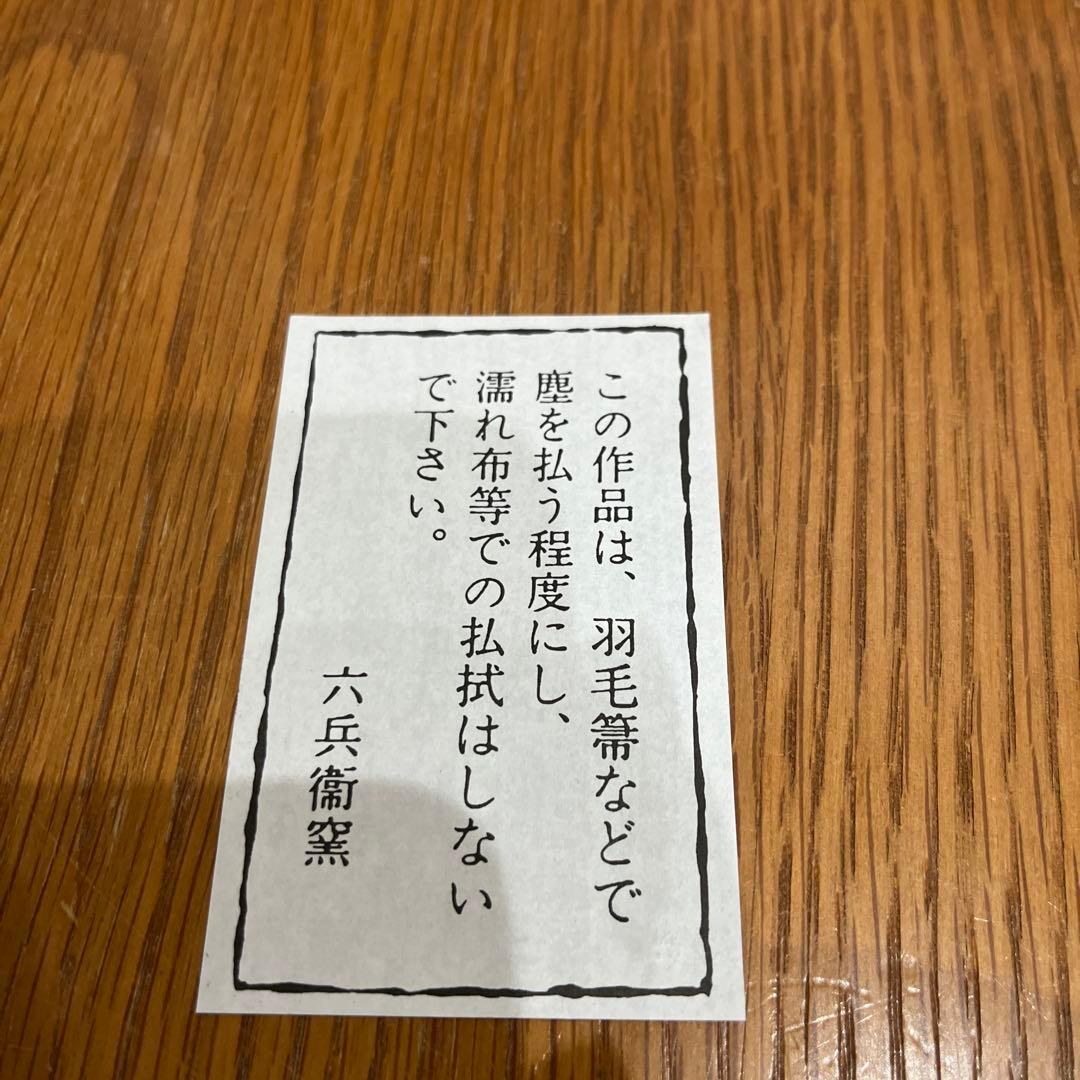 この作品は、羽毛箒などで
塵を払う程度にし、
濡れ布等での払拭はしない
で下さい。
六兵衞窯